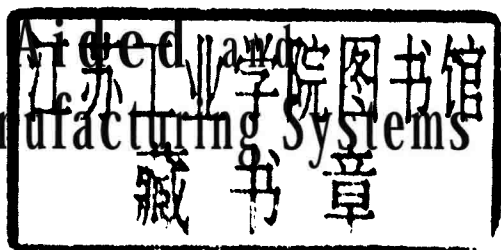 Aided and
江苏工业学院图书馆
nufacturing Systems
藏书章